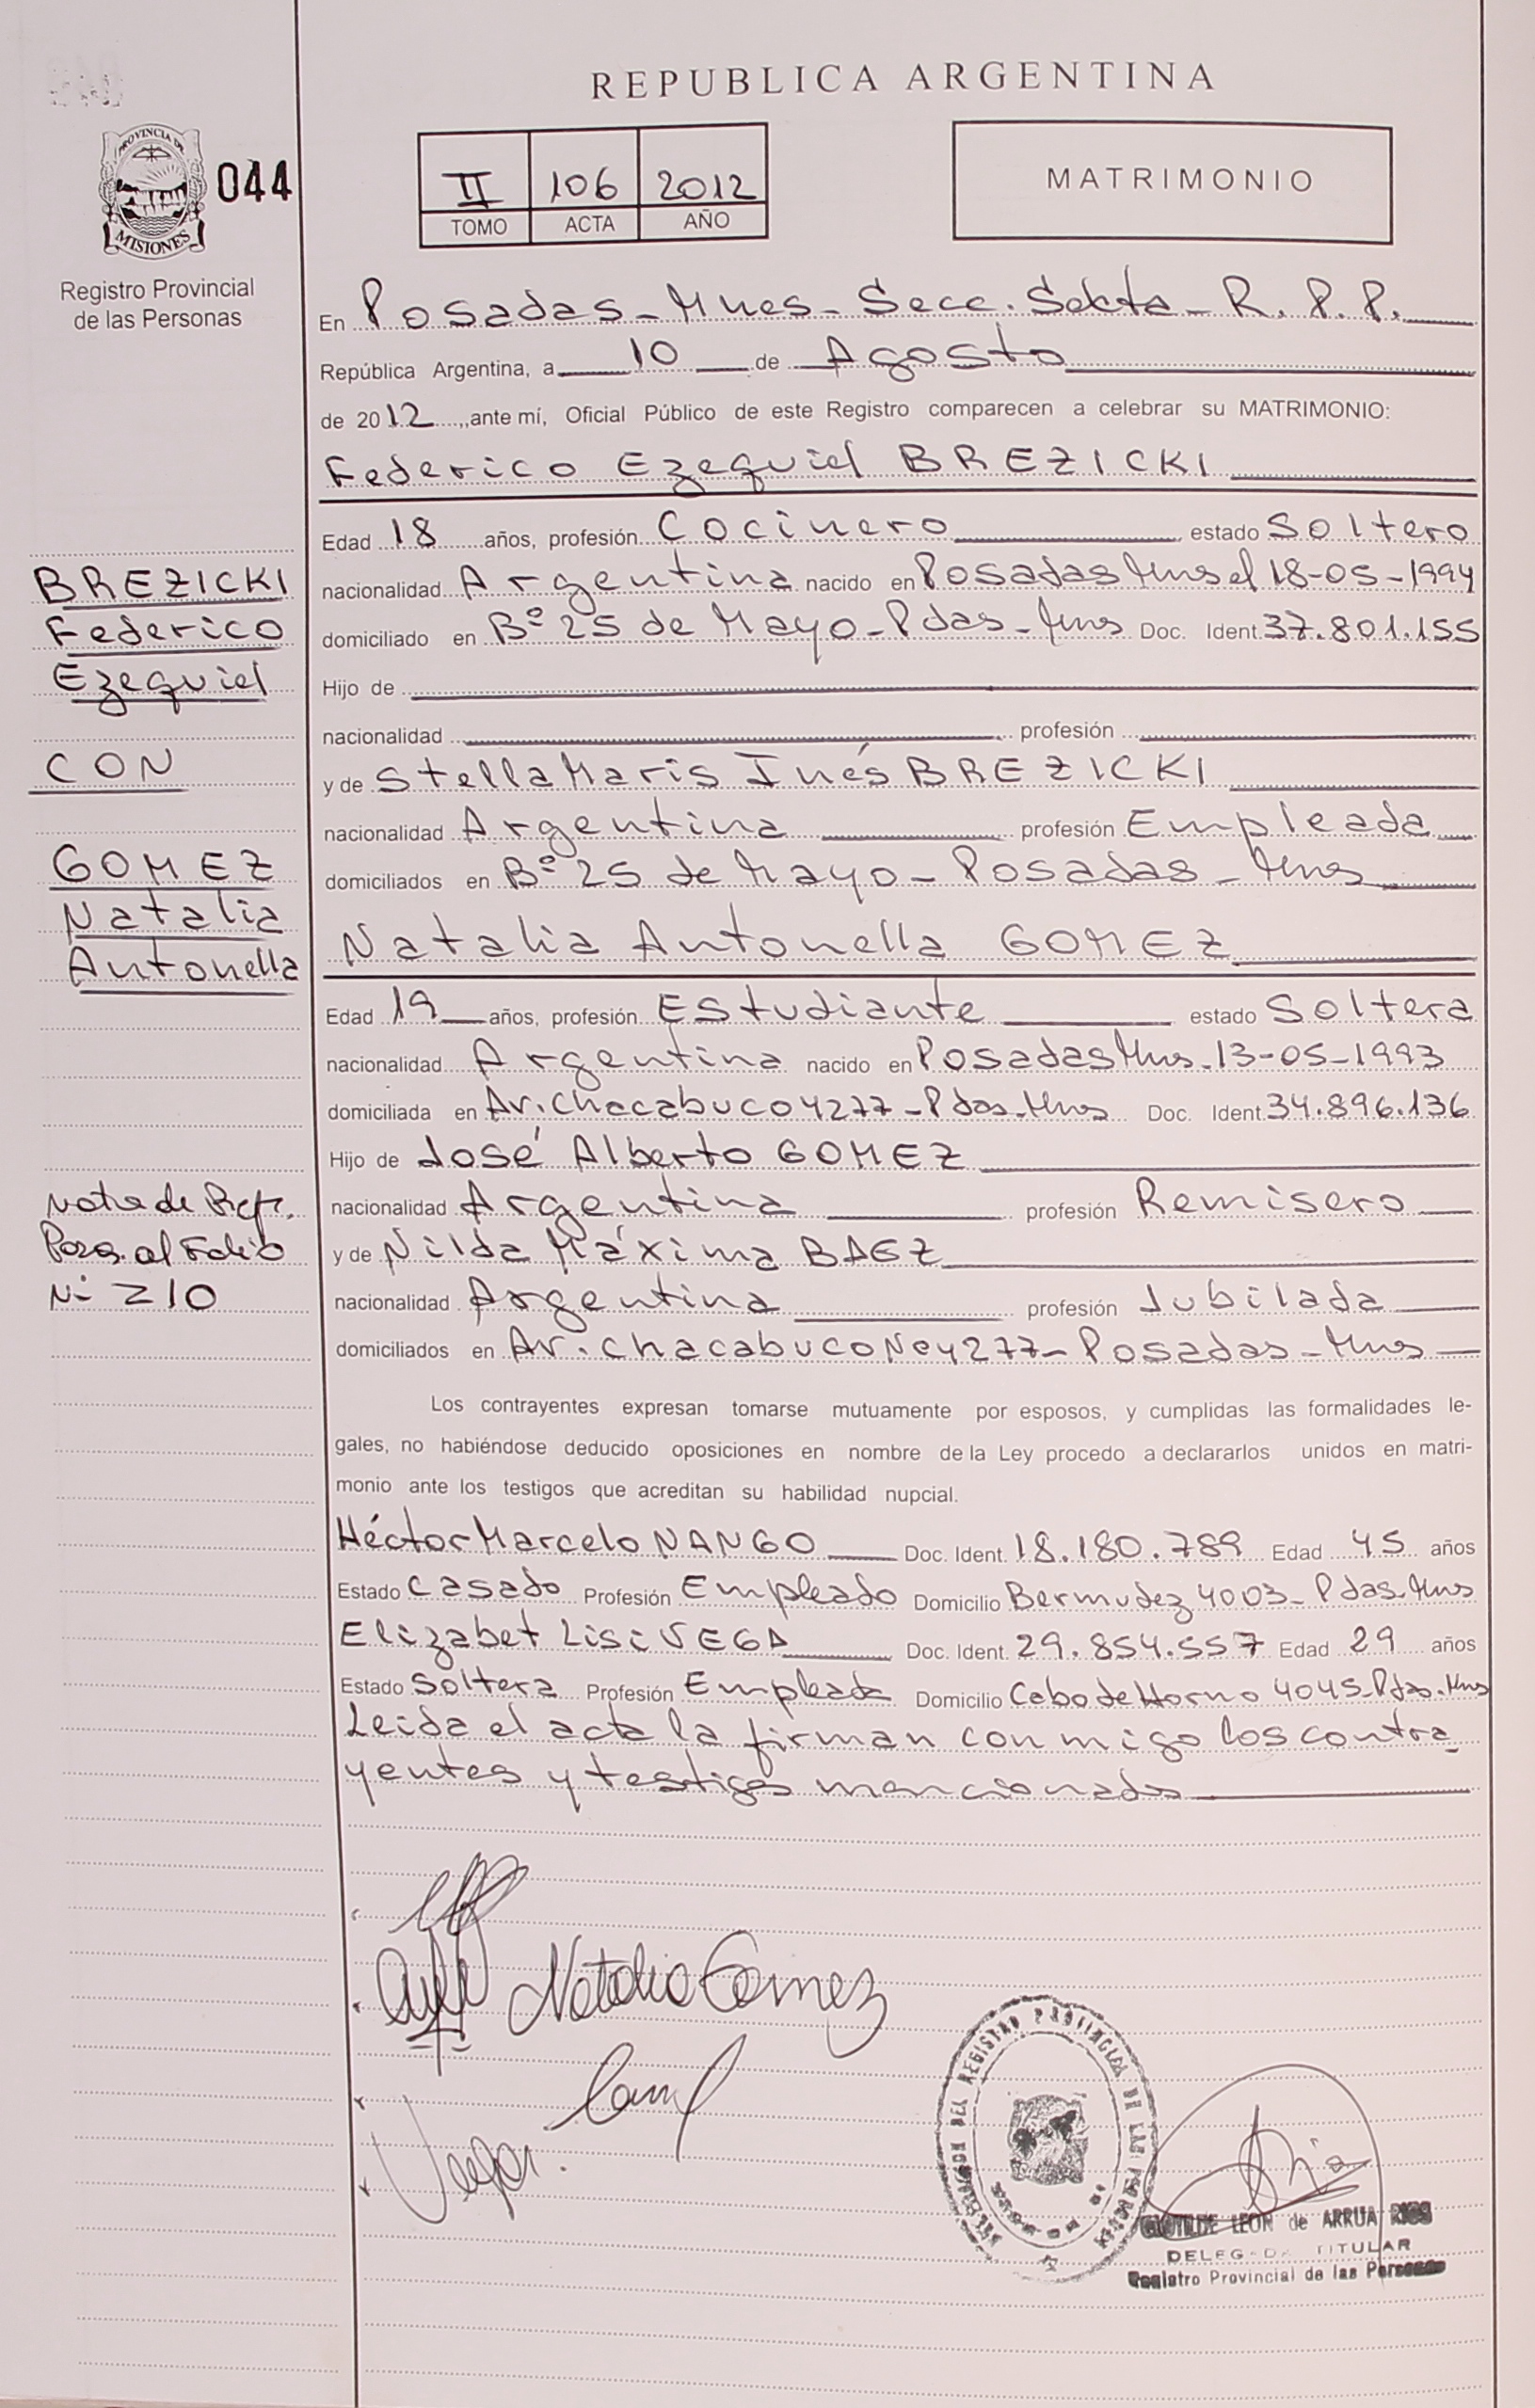 REPUBLICA ARGENTINA
PROVINCIA DE
MISIONES
044
Registro Provincial
de las Personas
II 106 2012
TOMO ACTA AÑO
MATRIMONIO
En Posadas - Mnes - Secc. Sexta - R. P. P.
República Argentina, a 10 de Agosto
de 2012, ante mí, Oficial Público de este Registro comparecen a celebrar su MATRIMONIO:
Federico Ezequiel BREZICKI
Edad 18 años, profesión Cocinero estado Soltero
nacionalidad Argentina nacido en Posadas Mnes el 18-05-1994
domiciliado en Bº 25 de Mayo - Pdas - Mnes Doc. Ident. 37.801.155
Hijo de
nacionalidad profesión
y de Stella Maris Inés BREZICKI
nacionalidad Argentina profesión Empleada
domiciliados en Bº 25 de Mayo - Posadas - Mnes
Natalia Antonella GOMEZ
Edad 19 años, profesión Estudiante estado Soltera
nacionalidad Argentina nacido en Posadas Mnes - 13-05-1993
domiciliada en Av. Chacabuco 4277 - Pdas - Mnes Doc. Ident. 34.896.136
Hijo de José Alberto GOMEZ
nacionalidad Argentina profesión Remisero
y de Nilda Máxima BAEZ
nacionalidad Argentina profesión Jubilada
domiciliados en Av. Chacabuco Nº 4277 - Posadas - Mnes
Los contrayentes expresan tomarse mutuamente por esposos, y cumplidas las formalidades le-
gales, no habiéndose deducido oposiciones en nombre de la Ley procedo a declararlos unidos en matri-
monio ante los testigos que acreditan su habilidad nupcial.
Héctor Marcelo NANGO Doc. Ident. 18.180.789 Edad 45 años
Estado Casado Profesión Empleado Domicilio Bermudez 4003 - Pdas. Mnes
Elizabet Lisi VEGA Doc. Ident. 29.854.557 Edad 29 años
Estado Soltera Profesión Empleada Domicilio Cabo de Horno 4045 - Pdas. Mns
Leida el acta la firman conmigo los contra
yentes y testigos mencionados
BREZICKI
Federico
Ezequiel
CON
GOMEZ
Natalia
Antonella
Nota de
al Folio
Nº 210
Natalia Gomez
Vega.
DELEGACION DEL REGISTRO PROVINCIAL DE LAS PERSONAS
CLOTILDE LEON de ARRUA RIOS
DELEGADA TITULAR
Registro Provincial de las Personas